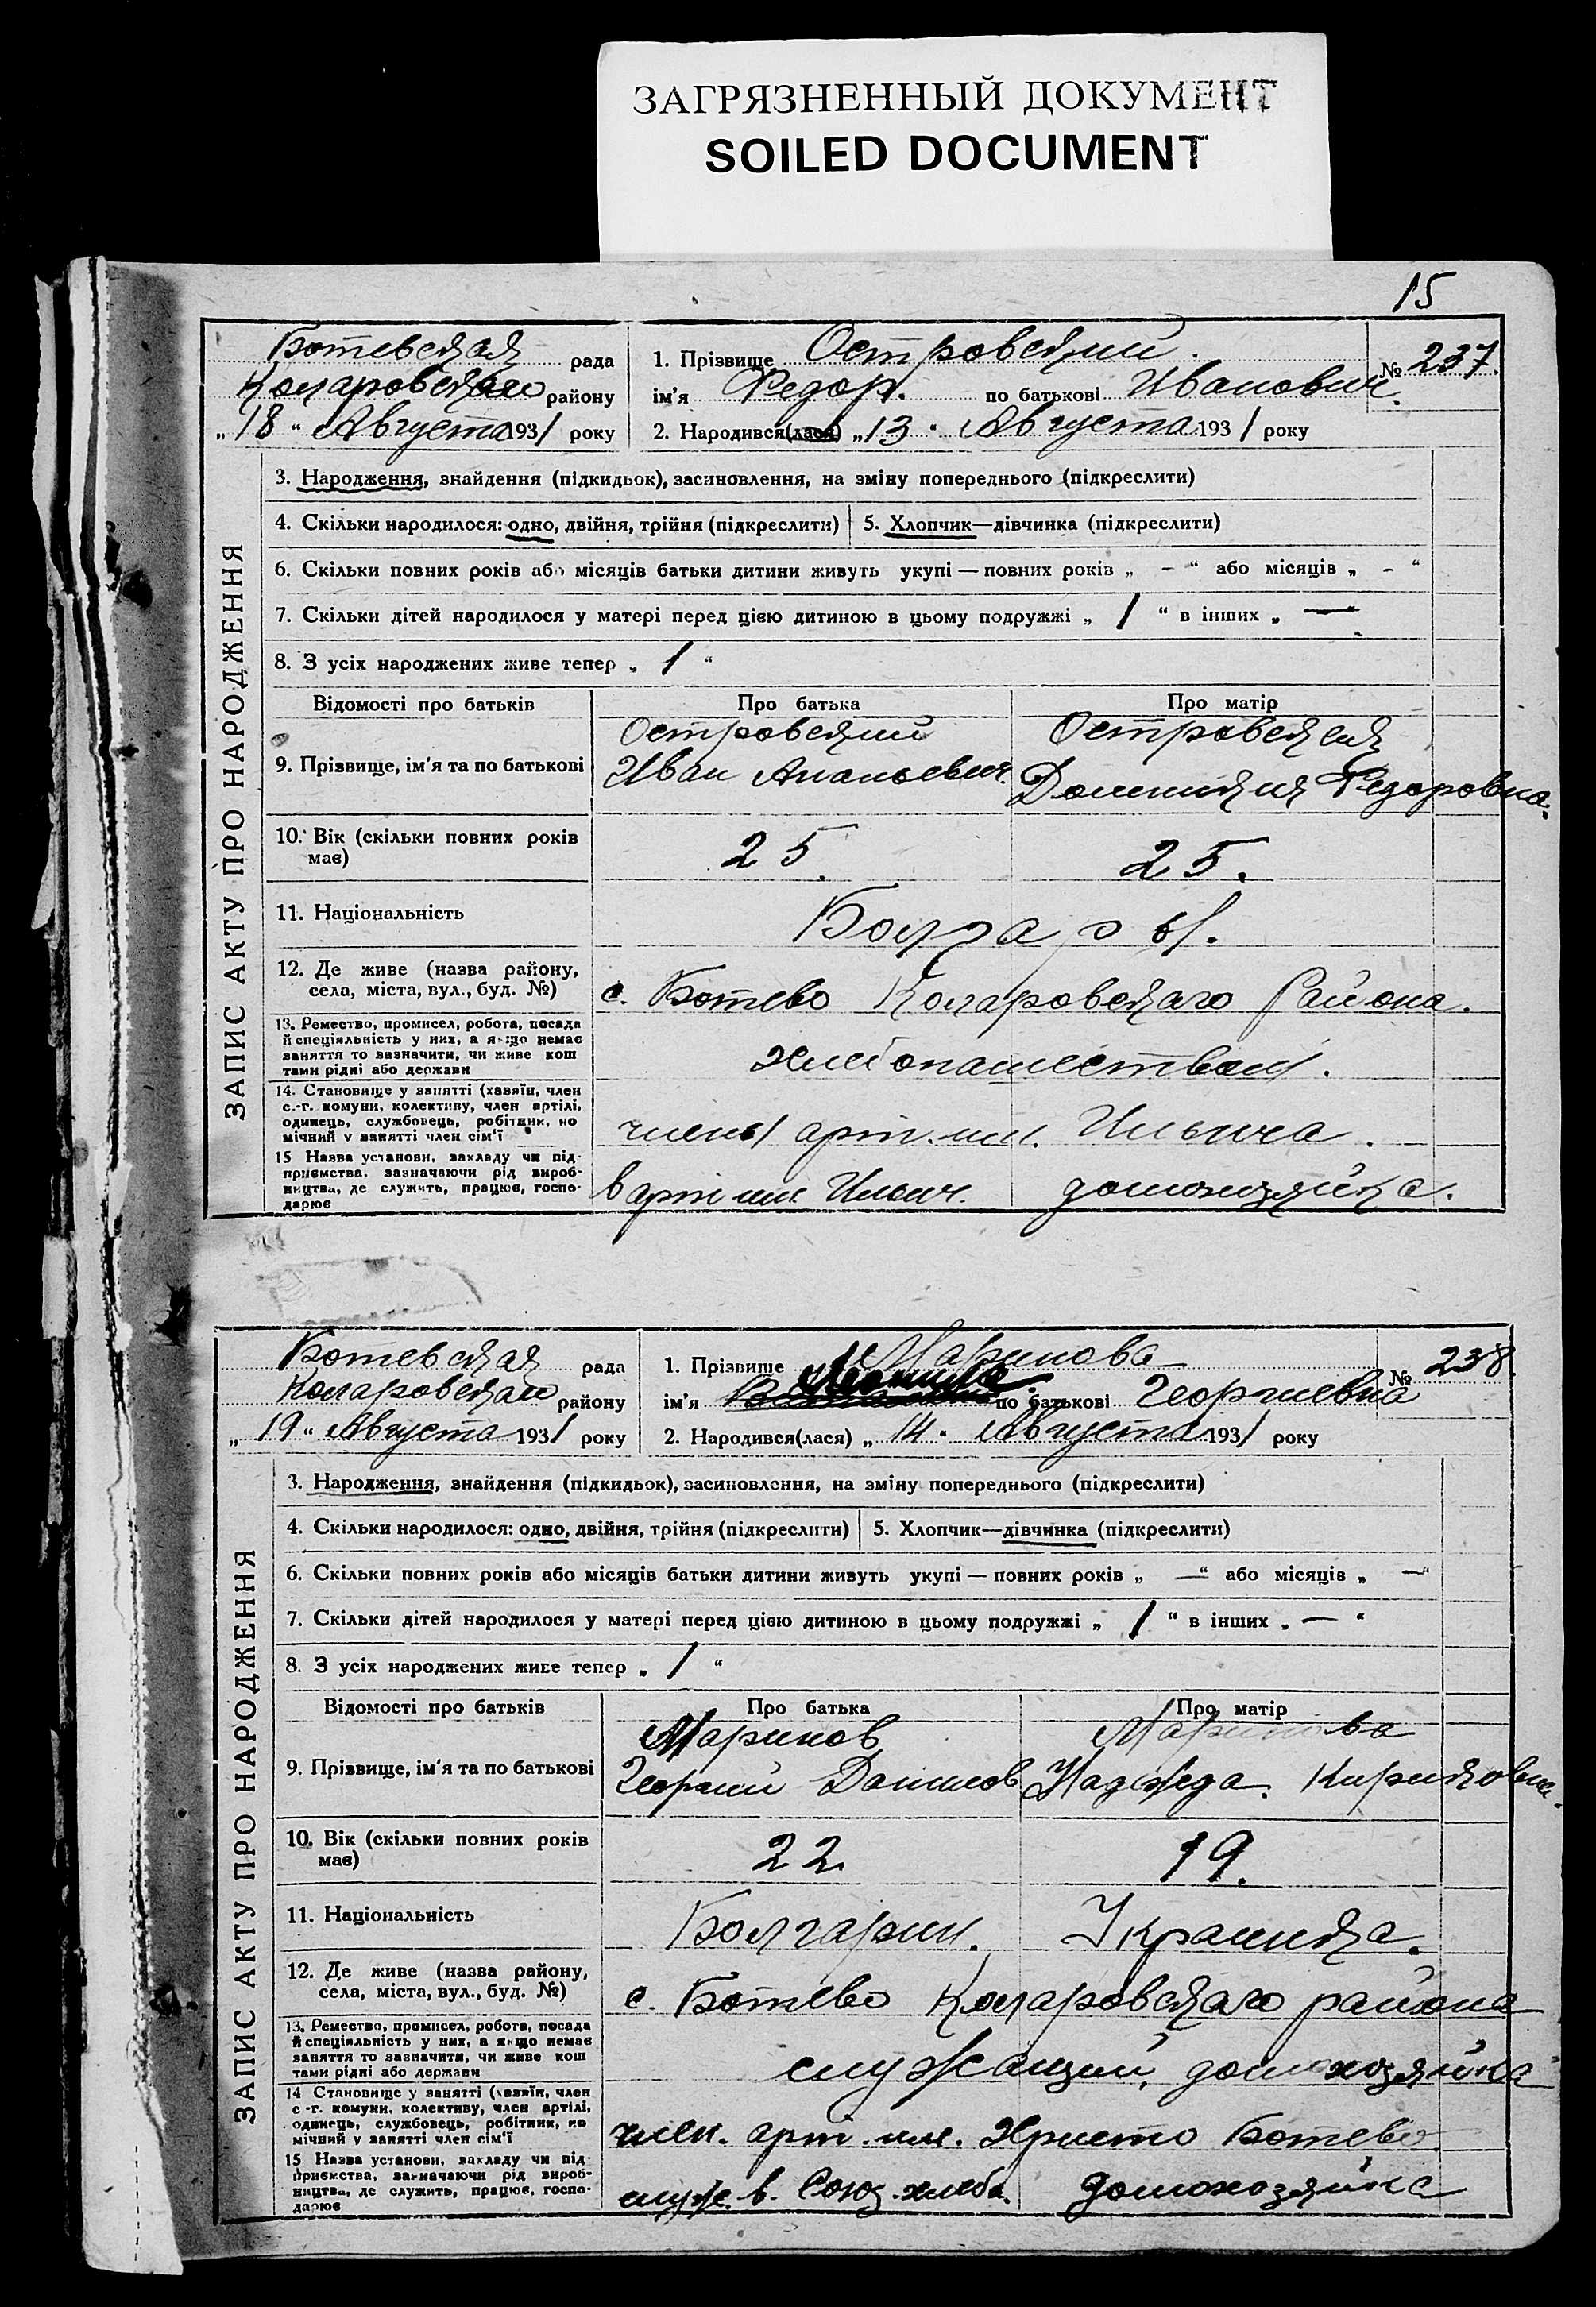 ЗАГРЯЗНЕННЫЙ ДОКУМЕНТ
SOILED DOCUMENT
15
ЗАПИС АКТУ ПРО НАРОДЖЕННЯ
Ботевская рада
Коларовского району
„18“ Августа 1931 року
1. Прізвище Островский
№ 237.
ім'я Федор. по батькові Иванович.
2. Народився(лася) „13“ Августа 1931 року
3. Народження, знайдення (підкидьок), засиновлення, на зміну попереднього (підкреслити)
4. Скільки народилося: одно, двійня, трійня (підкреслити)
5. Хлопчик—дівчинка (підкреслити)
6. Скільки повних років або місяців батьки дитини живуть укупі — повних років „ - “ або місяців „ - “
7. Скільки дітей народилося у матері перед цією дитиною в цьому подружжі „ 1 “ в інших „ — “
8. З усіх народжених живе тепер „ 1 “
Відомості про батьків
Про батька
Про матір
9. Прізвище, ім'я та по батькові
Островский
Иван Ананьевич.
Островская
Домникия Федоровна.
10. Вік (скільки повних років
має)
25.
25.
11. Національність
Болгары.
12. Де живе (назва району,
села, міста, вул., буд. №)
с. Ботево Коларовскаго Района.
13. Ремество, промисел, робота, посада
й спеціяльність у них, а якщо немає
заняття то зазначити, чи живе кош
тами рідні або держави
хлебопашеством.
14. Становище у занятті (хазяїн, член
с.-г. комуни, колективу, член артілі,
одинець, службовець, робітник, по
мічний у занятті член сім'ї
члены арт. им. Ильича.
15 Назва установи, закладу чи під-
приємства, зазначаючи рід вироб-
ництва, де служить, працює, госпо-
дарює
в арт им Ильич.
домохозяйка.
ЗАПИС АКТУ ПРО НАРОДЖЕННЯ
Ботевская рада
Коларовского району
„19“ Августа 1931 року
1. Прізвище Маринова
№ 238
ім'я по батькові Георгиевна
2. Народився(лася) „14“ Августа 1931 року
3. Народження, знайдення (підкидьок), засиновлення, на зміну попереднього (підкреслити)
4. Скільки народилося: одно, двійня, трійня (підкреслити)
5. Хлопчик—дівчинка (підкреслити)
6. Скільки повних років або місяців батьки дитини живуть укупі — повних років „ — “ або місяців „ — “
7. Скільки дітей народилося у матері перед цією дитиною в цьому подружжі „ 1 “ в інших „ — “
8. З усіх народжених живе тепер „ 1 “
Відомості про батьків
Про батька
Про матір
9. Прізвище, ім'я та по батькові
Маринов
Георгий Данилов
Маринова
Надежда. Кириловна.
10. Вік (скільки повних років
має)
22
19.
11. Національність
Болгарин.
Украинка.
12. Де живе (назва району,
села, міста, вул., буд. №)
с. Ботево Коларовскаго района
13. Ремество, промисел, робота, посада
й спеціяльність у них, а якщо немає
заняття то зазначити, чи живе кош
тами рідні або держави
служащий, домохозяйка
14 Становище у занятті (хазяїн, член
с-г. комуни, колективу, член артілі,
одинець, службовець, робітник, по
мічний у занятті член сім'ї
член. арт. им. Христо Ботево
15 Назва установи, закладу чи під-
приємства, зазначаючи рід вироб-
ництва, де служить, працює, госпо-
дарює
служ. в. Союз. хлеба.
домохозяйка